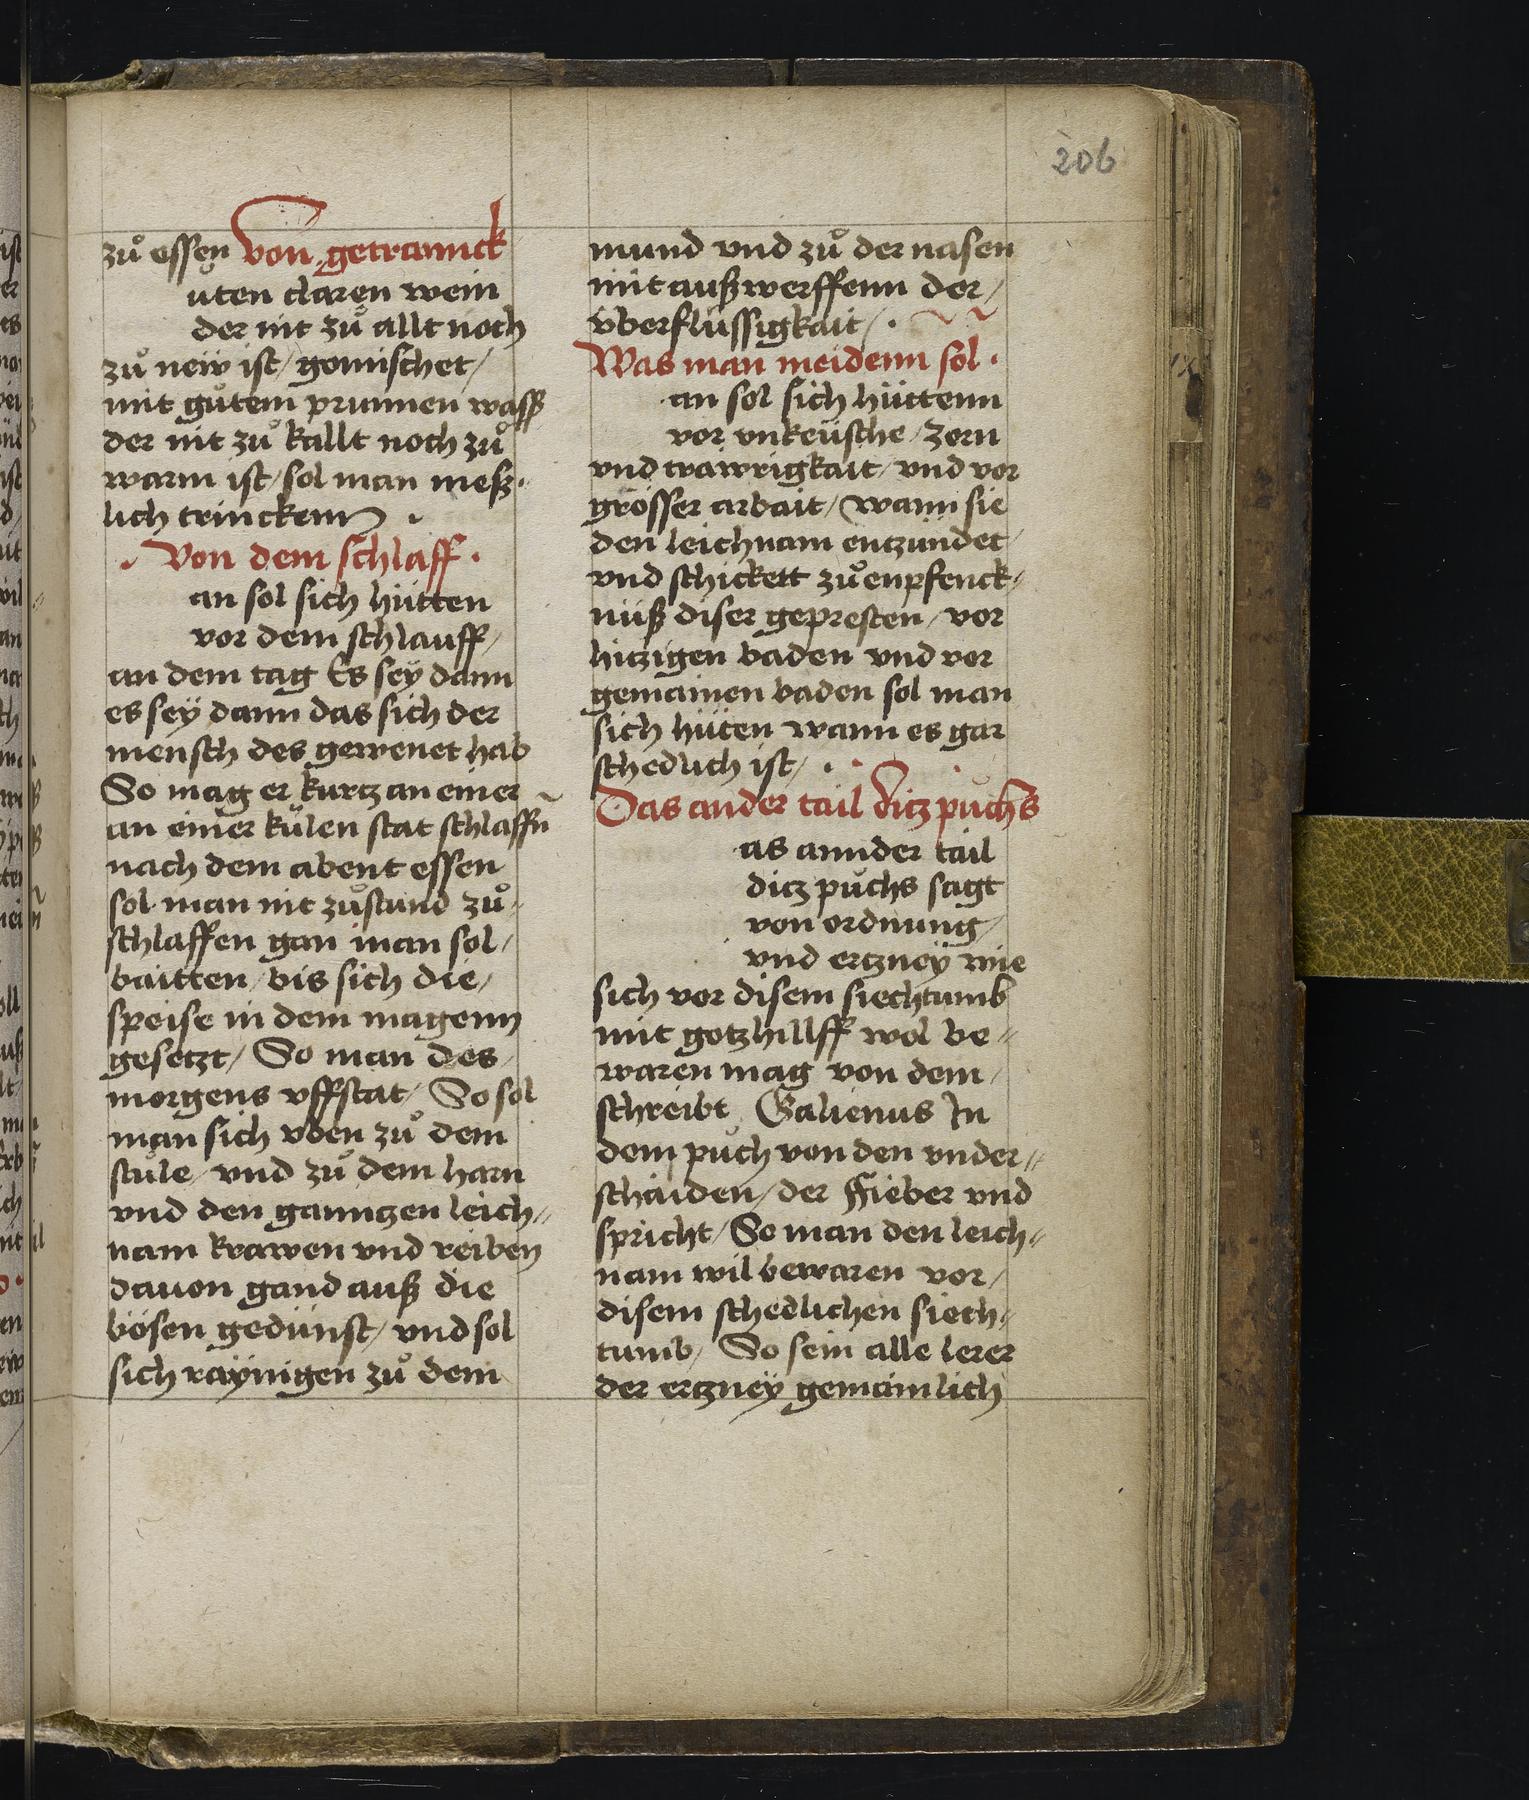 206
zuͦ essen von getrannck
uͦten claren wein
der nit zuͦ allt noch
zuͦ new ist / gemischet /
mit guͦtem prunnen wasß
der nit zuͦ kallt noch zuͦ
warm ist / sol man meß-
lich trinckenn .
. Von dem schlaff .
an sol sich hütten
vor dem schlauff /
an dem tag Es sey dann
es sey dann das sich der
mensch des gewenet hab
So mag er kurtz an einer
an einer külen stat schlaffn̄
nach dem abent essen
sol man nit zuͦstund zuͦ-
schlaffen gan man sol /
baitten / bis sich die /
speise in dem magenn
gesetzt / So man des /
morgens vffstat / So sol
man sich vben zuͦ dem
stuͦle / vnd zuͦ dem harn
vnd den ganntzen leich //
nam krawen vnd reiben
dauon gand auß die
bösen gedünst / vnd sol
sich raÿnigen zuͦ dem
mund vnd zuͦ der nasen
mit außwerffenn der /
vberflüssigkait / .
Was man meidenn sol .
an sol sich hüttenn
vor vnkeüsche / zorn
vnd trawrigkait / vnd vor
grösser arbait / wann sie
den leichnam entzündet
vnd schickett zuͦ enpfenck-
nüß diser gepresten / vor
hitzigen baden vnd vor
gemainen baden sol man
sich hüten wann es gar
schedlich ist / .
Das ander tail ditz puͦchs
as annder tail
ditz puͦchs sagt
von ordnung /
vnd ertzneÿ wie
sich vor disem siechtumb
mit gotz hillff wol be //
waren mag von dem /
schreibt Galienus In
dem puͦch von den vnder //
schaiden / der ffieber vnd
spricht / So man den leich //
nam wil bewaren vor /
disem schedlichen siech //
tumb / So sein alle lerer
der ertzneÿ gemainlich